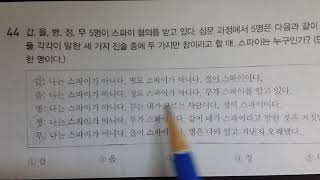 44 갑, 을, 병, 정, 무 5명이 스파이 혐의를 받고 있다. 심문 과정에서 5명은 다음과 같이
들 각각이 말한 세 가지 진술 중에 두 가지만 참이라고 할 때, 스파이는 누구인가? (단
한 명이다.)
갑: 나는 스파이가 아니다. 병도 스파이가 아니다. 정이 스파이이다.
을: 나는 스파이가 아니다. 정도 스파이가 아니다. 무가 스파이를 알고 있다.
병: 나는 스파이가 아니다. 무는 내가 모르는 사람이다. 정이 스파이이다.
정: 나는 스파이가 아니다. 무가 스파이다. 갑이 내가 스파이라고 말한 것은 거짓
무: 나는 스파이가 아니다. 을이 스파이 병은 나와 알고 지낸지 오래됐다.
① 갑 ② 을 ④ 정